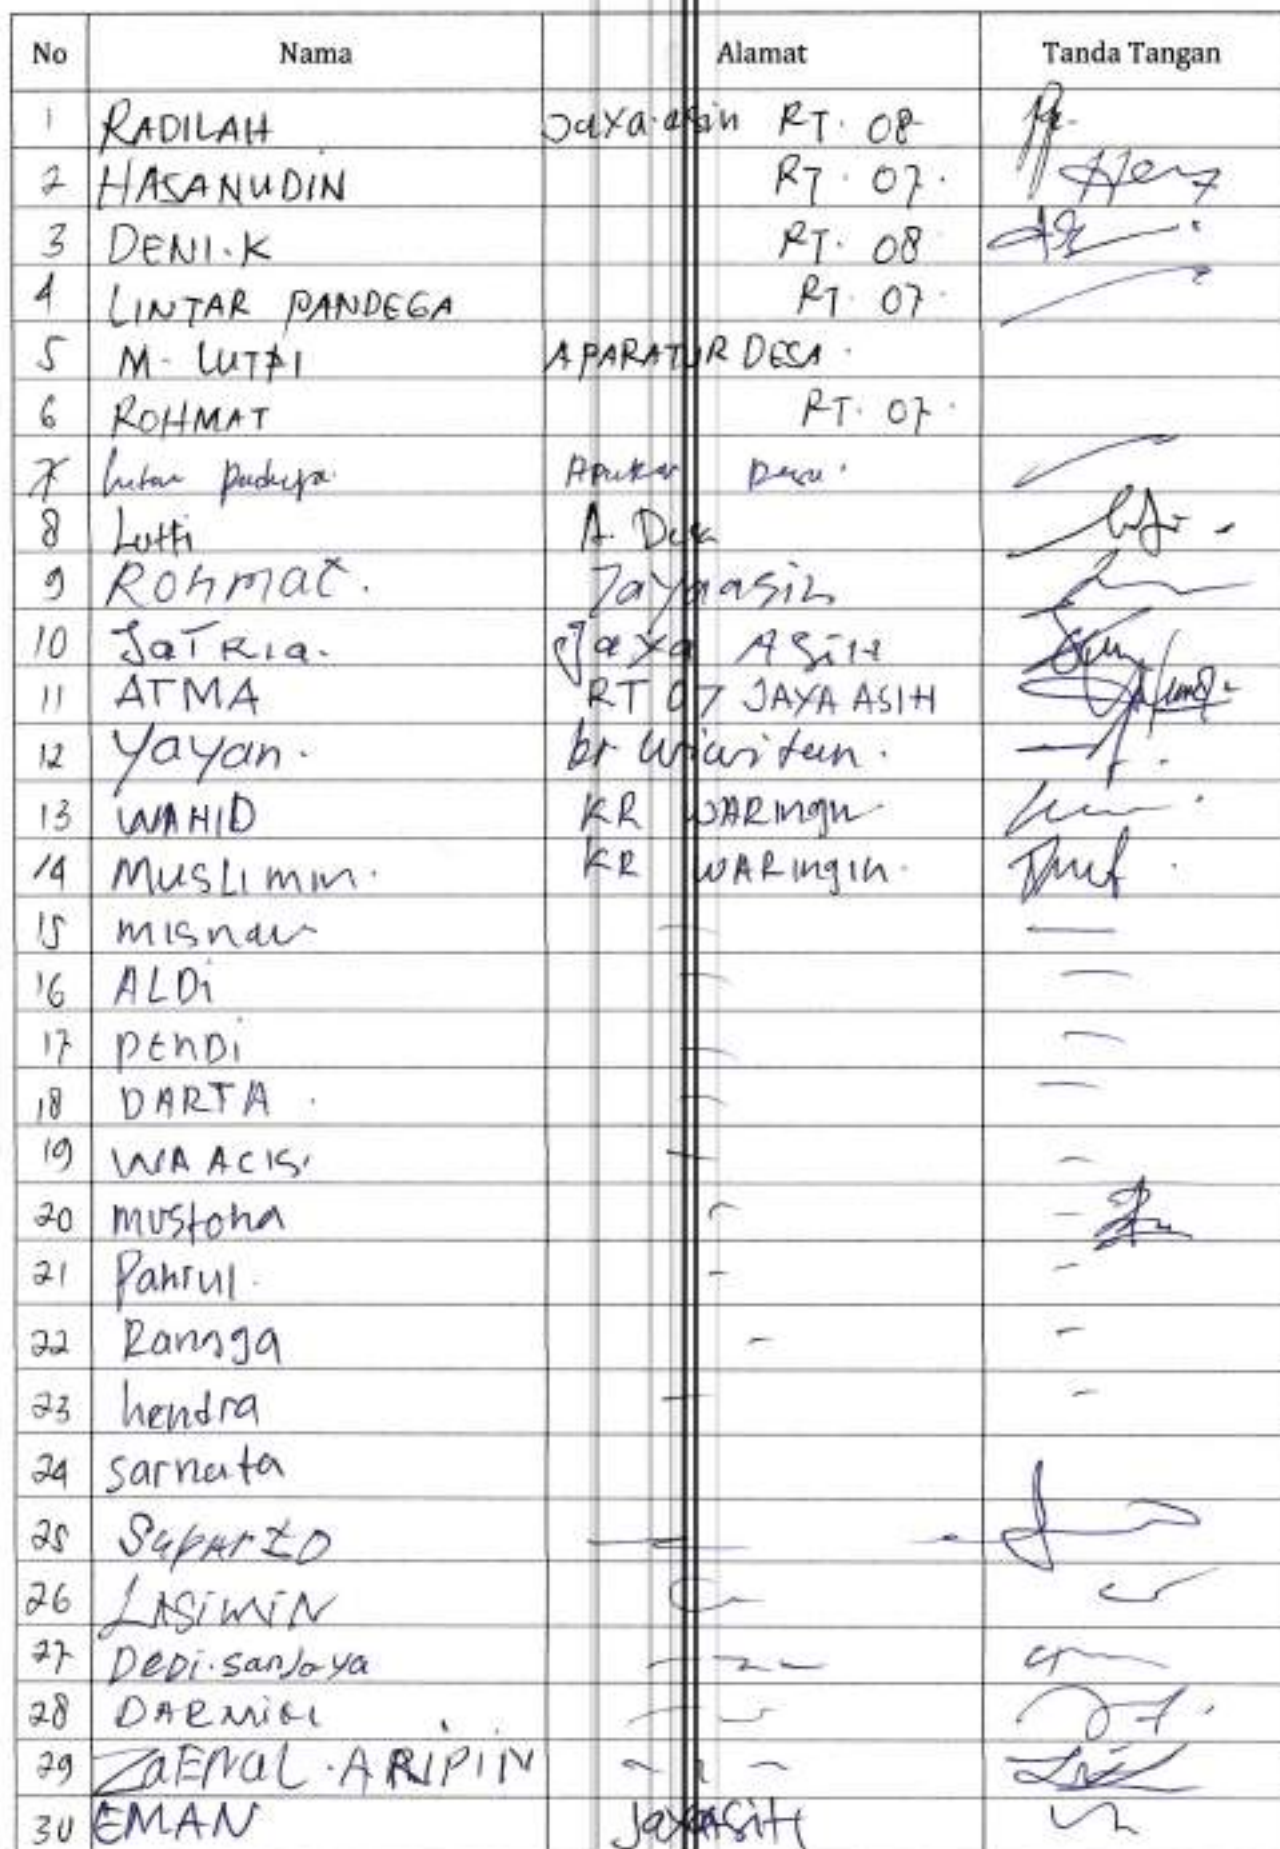 No Nama Alamat Tanda Tangan
1 RADILAH Jaya asin RT. 08
2 HASANUDIN RT. 07.
3 DENI.K RT. 08
4 LINTAR PANDEGA RT. 07.
5 M. LUTPI APARATUR DESA.
6 ROHMAT RT. 07.
7
8 Lutfi A. Desa
9 Rohmat. Jayaasih
10 SaTRia. Jaya ASiH
11 ATMA RT 07 JAYA ASIH
12 Yayan.
13 WAHID KR WARingin
14 MUSLimin. KR WARingin.
15 misnar — —
16 ALDi — —
17 PEnDi — —
18 DARTA. — —
19 WA ACIS. — —
20 mustoha - -
21 Pahrul. - -
22 Rangga - -
23 hendra - -
24 sarnata
25 SuparTO
26 LASiMiN
27 DeDi.sanJaya
28
29 ZaENaL.ARIPIN
30 EMAN JayaASiH